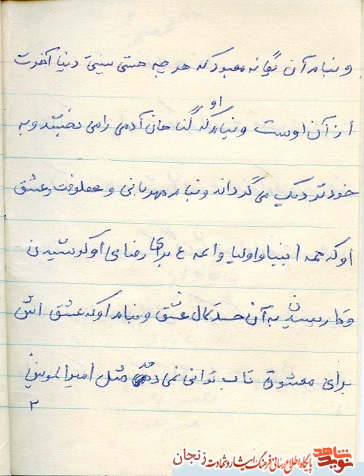 و بنام آن یگانه معبود که هر چه هستی بینی دنیا آخرت
از آن اوست و بنام او که گناهان آدمی را می بخشد و به
خود نزدیک می گرداند و بنام مهربانی و عطوفت و عشق
او که همه انبیا و اولیا و ائمه ع برای رضای او کوشیدن
و تا رسیدن به آن حد کمال عشق و بنام او که عشق اش
برای معشوق تاب توانی نمی دهد مثل امیرالمومنین
۲
نوید شاهد
پایگاه اطلاع رسانی فرهنگ ایثار و شهادت زنجان